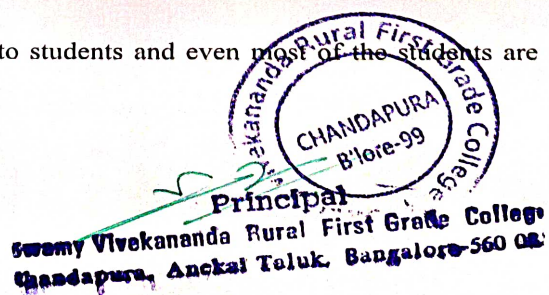 to students and even most of the students are
Vekananda Rural First Grade College
CHANDAPURA
B'lore-99
Principal
Swamy Vivekananda Rural First Grade College
Chandapura, Anekal Taluk, Bangalore-560